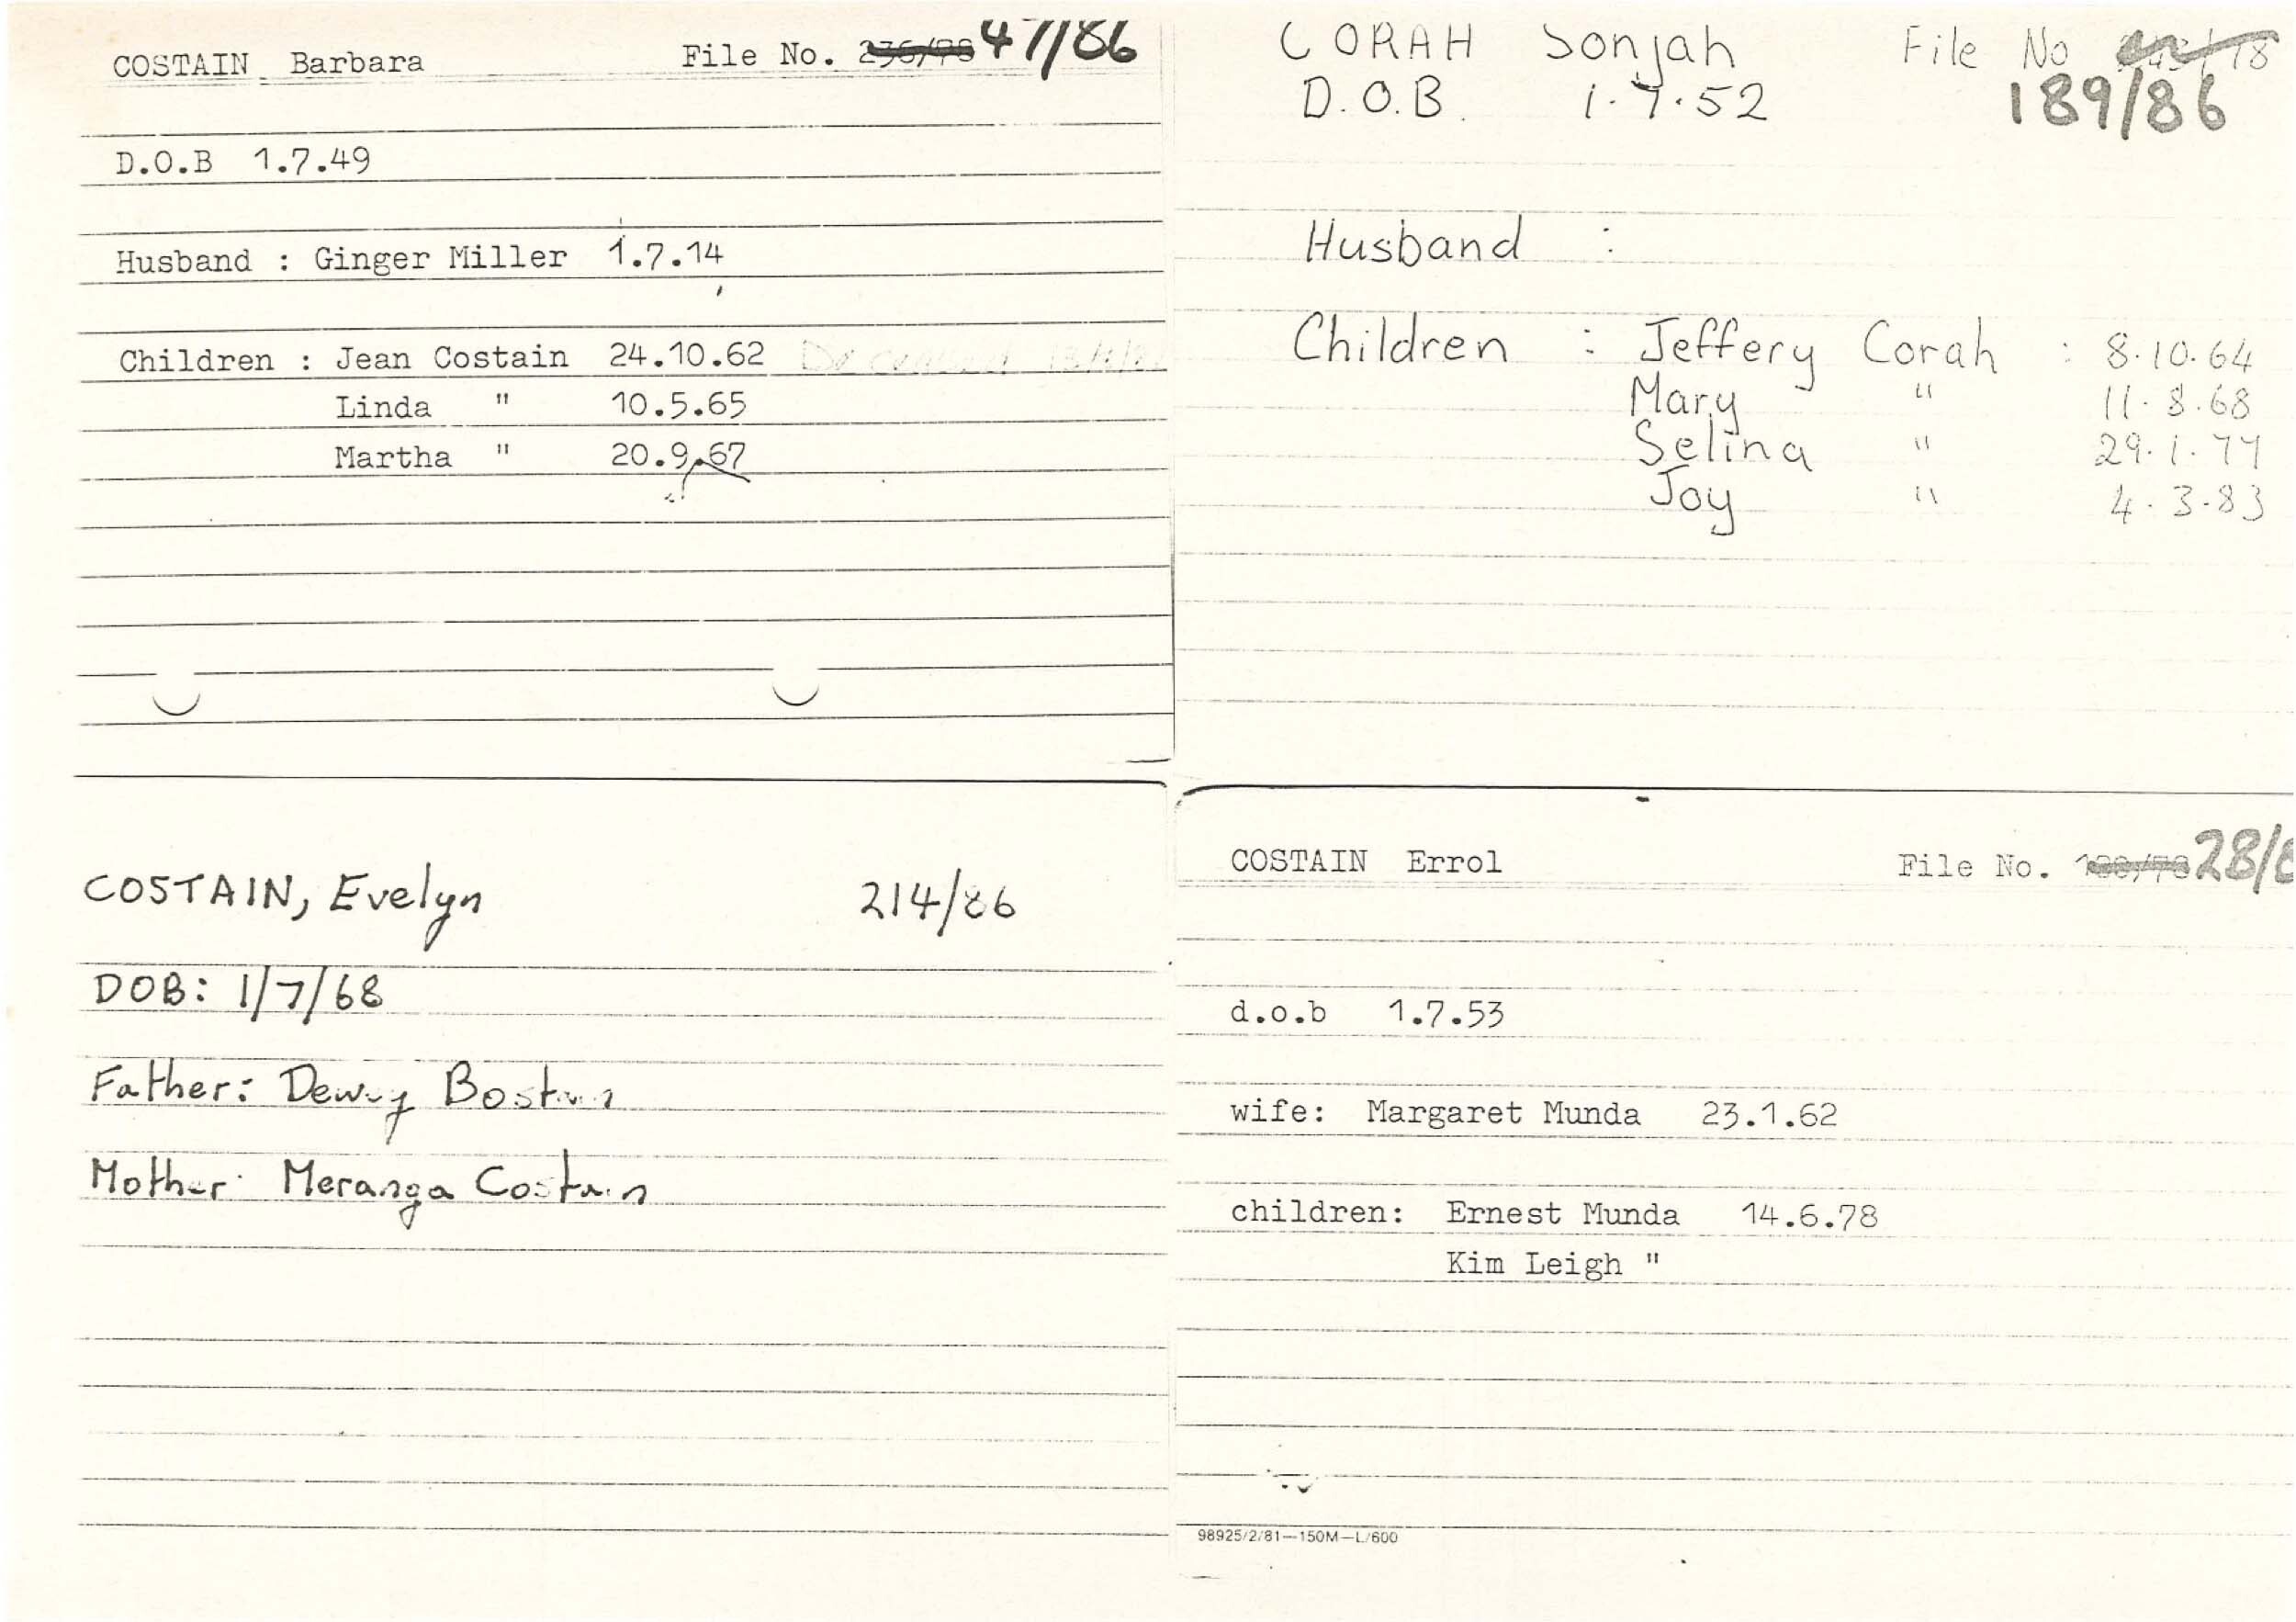 COSTAIN Barbara File No. 236/78 47/86
D.O.B 1.7.49
Husband : Ginger Miller 1.7.14
Children : Jean Costain 24.10.62 Deceased
Linda " 10.5.65
Martha " 20.9.67
CORAH Sonjah File No
D.O.B. 1.7.52 189/86
Husband :
Children : Jeffery Corah : 8.10.64
Mary " 11.8.68
Selina " 29.1.77
Joy " 4.3.83
COSTAIN, Evelyn 214/86
DOB: 1/7/68
Father: Dewey Bostain
Mother: Meranga Costain
COSTAIN Errol File No. 28/8
d.o.b 1.7.53
wife: Margaret Munda 23.1.62
children: Ernest Munda 14.6.78
Kim Leigh "
98925/2/81—150M—L/600